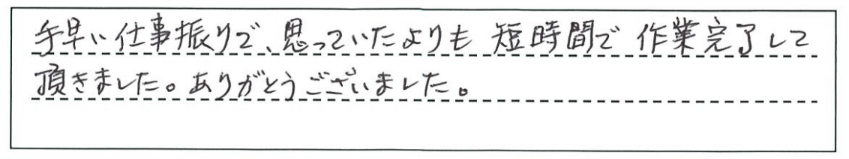 手早い仕事振りで、思っていたよりも 短時間で 作業完了して
頂きました。ありがとうございました。